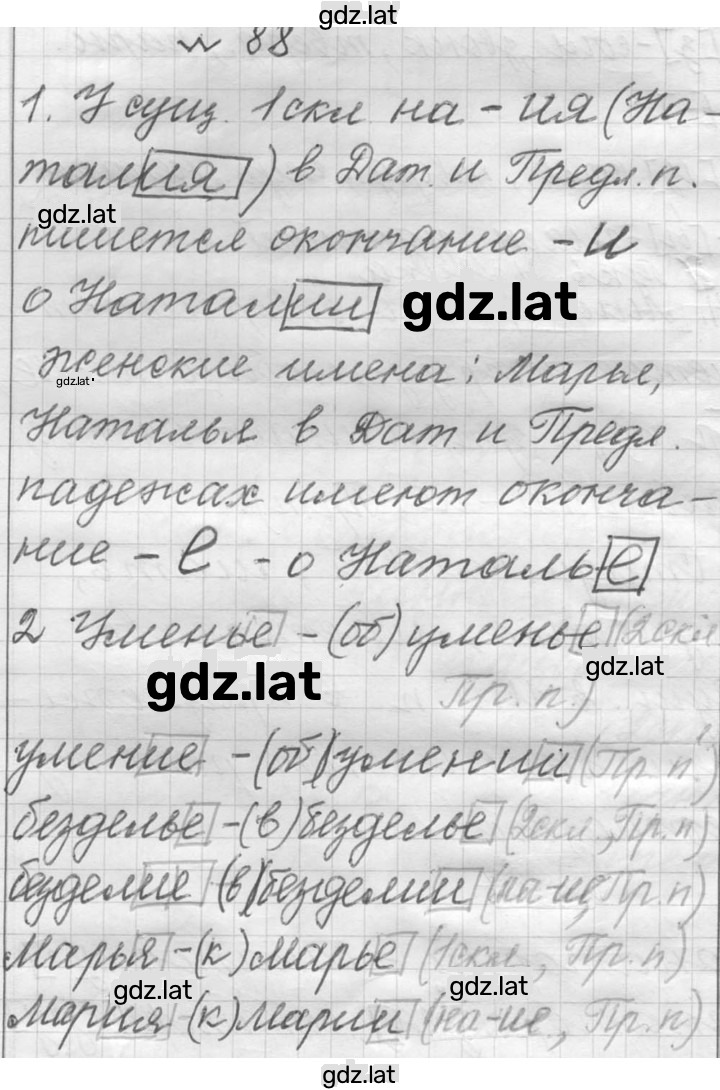 gdz.lat
№ 88
1. У сущ. 1скл на - ия (На-
талия) в Дат. и Предл. п.
gdz.lat
пишется окончание - и
о Наталии gdz.lat
женские имена: Марья,
gdz.lat
Наталья в Дат. и Предл.
падежах имеют оконча-
ние - е - о Наталье
2 Уменье - (об) уменье (2скл
gdz.lat
gdz.lat Пр. п.)
умение - (об) умении (Пр. п.)
безделье - (в) безделье (2скл., Пр. п)
безделие (в) безделии (на-ие, Пр. п)
Марья - (к) Марье (1скл., Пр. п)
gdz.lat gdz.lat
Мария - (к) Марии (на-ие, Пр. п)
gdz.lat